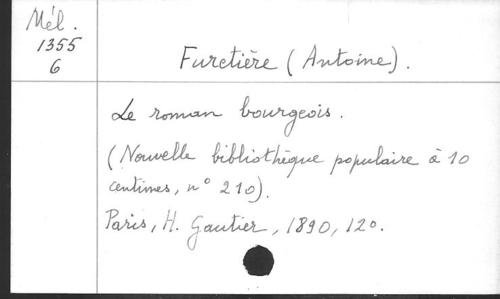 Mél.
1355
6
Furetière (Antoine).
Le roman bourgeois.
(Nouvelle bibliothèque populaire à 10
centimes, n° 210).
Paris, H. Gautier, 1890, 12o.